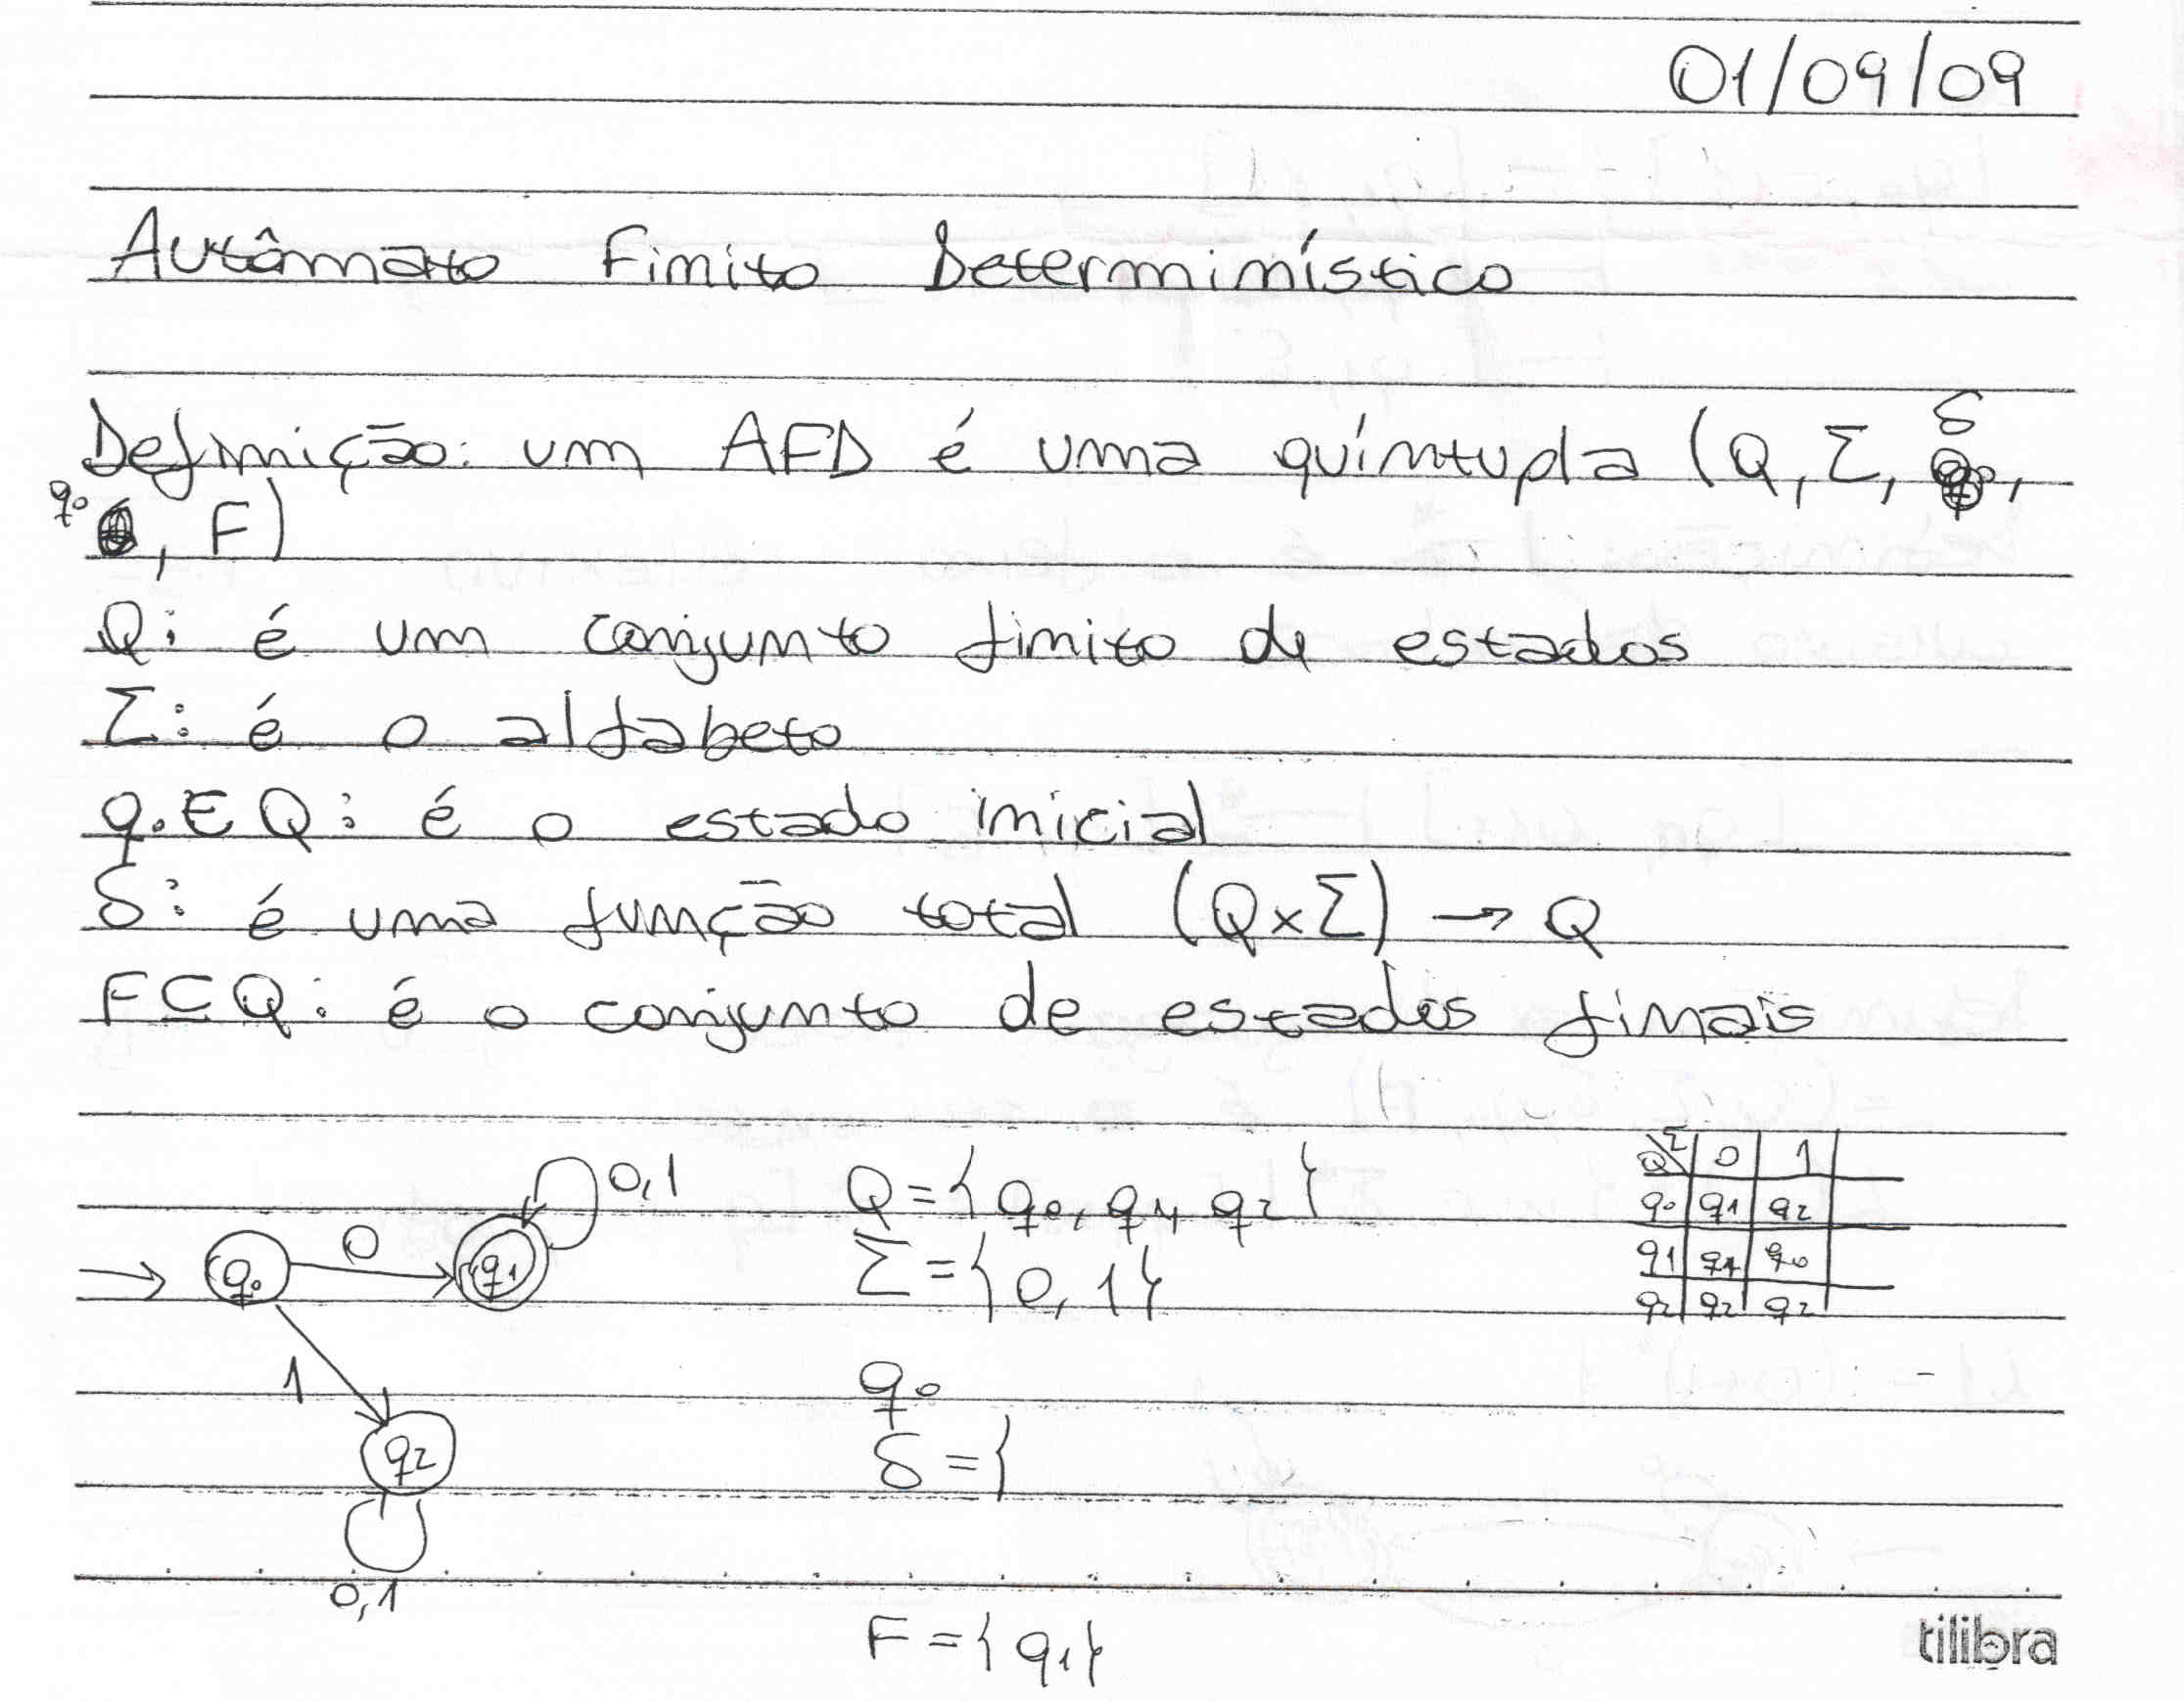 01/09/09
Autômato Finito Determinístico
Definição: um AFD é uma quíntupla (Q, Σ, δ,
q0, F)
Q: é um conjunto finito de estados
Σ: é o alfabeto
q0 ∈ Q: é o estado inicial
δ: é uma função total (Q×Σ) → Q
F ⊆ Q: é o conjunto de estados finais
0,1
q0 0 q1
1
q2
0,1
Q = { q0, q1, q2 }
Σ = { 0, 1 }
q0
δ = {
F = { q1 }
Q Σ 0 1
q0 q1 q2
q1 q1 q0
q2 q2 q2
tilibra